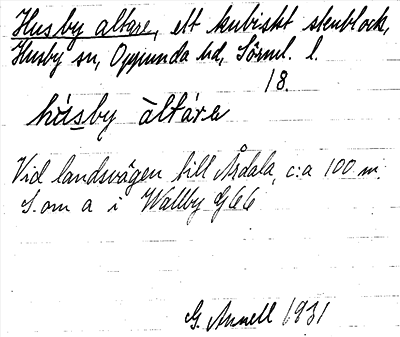 Husby altare, ett kubiskt stenblock,
Husby sn, Oppunda hd, Sörml. l.
18.
hùsby àltáre
Vid landsvägen till Årdala, c:a 100 m.
S. om a i Wallby G66
G. Annell 1931